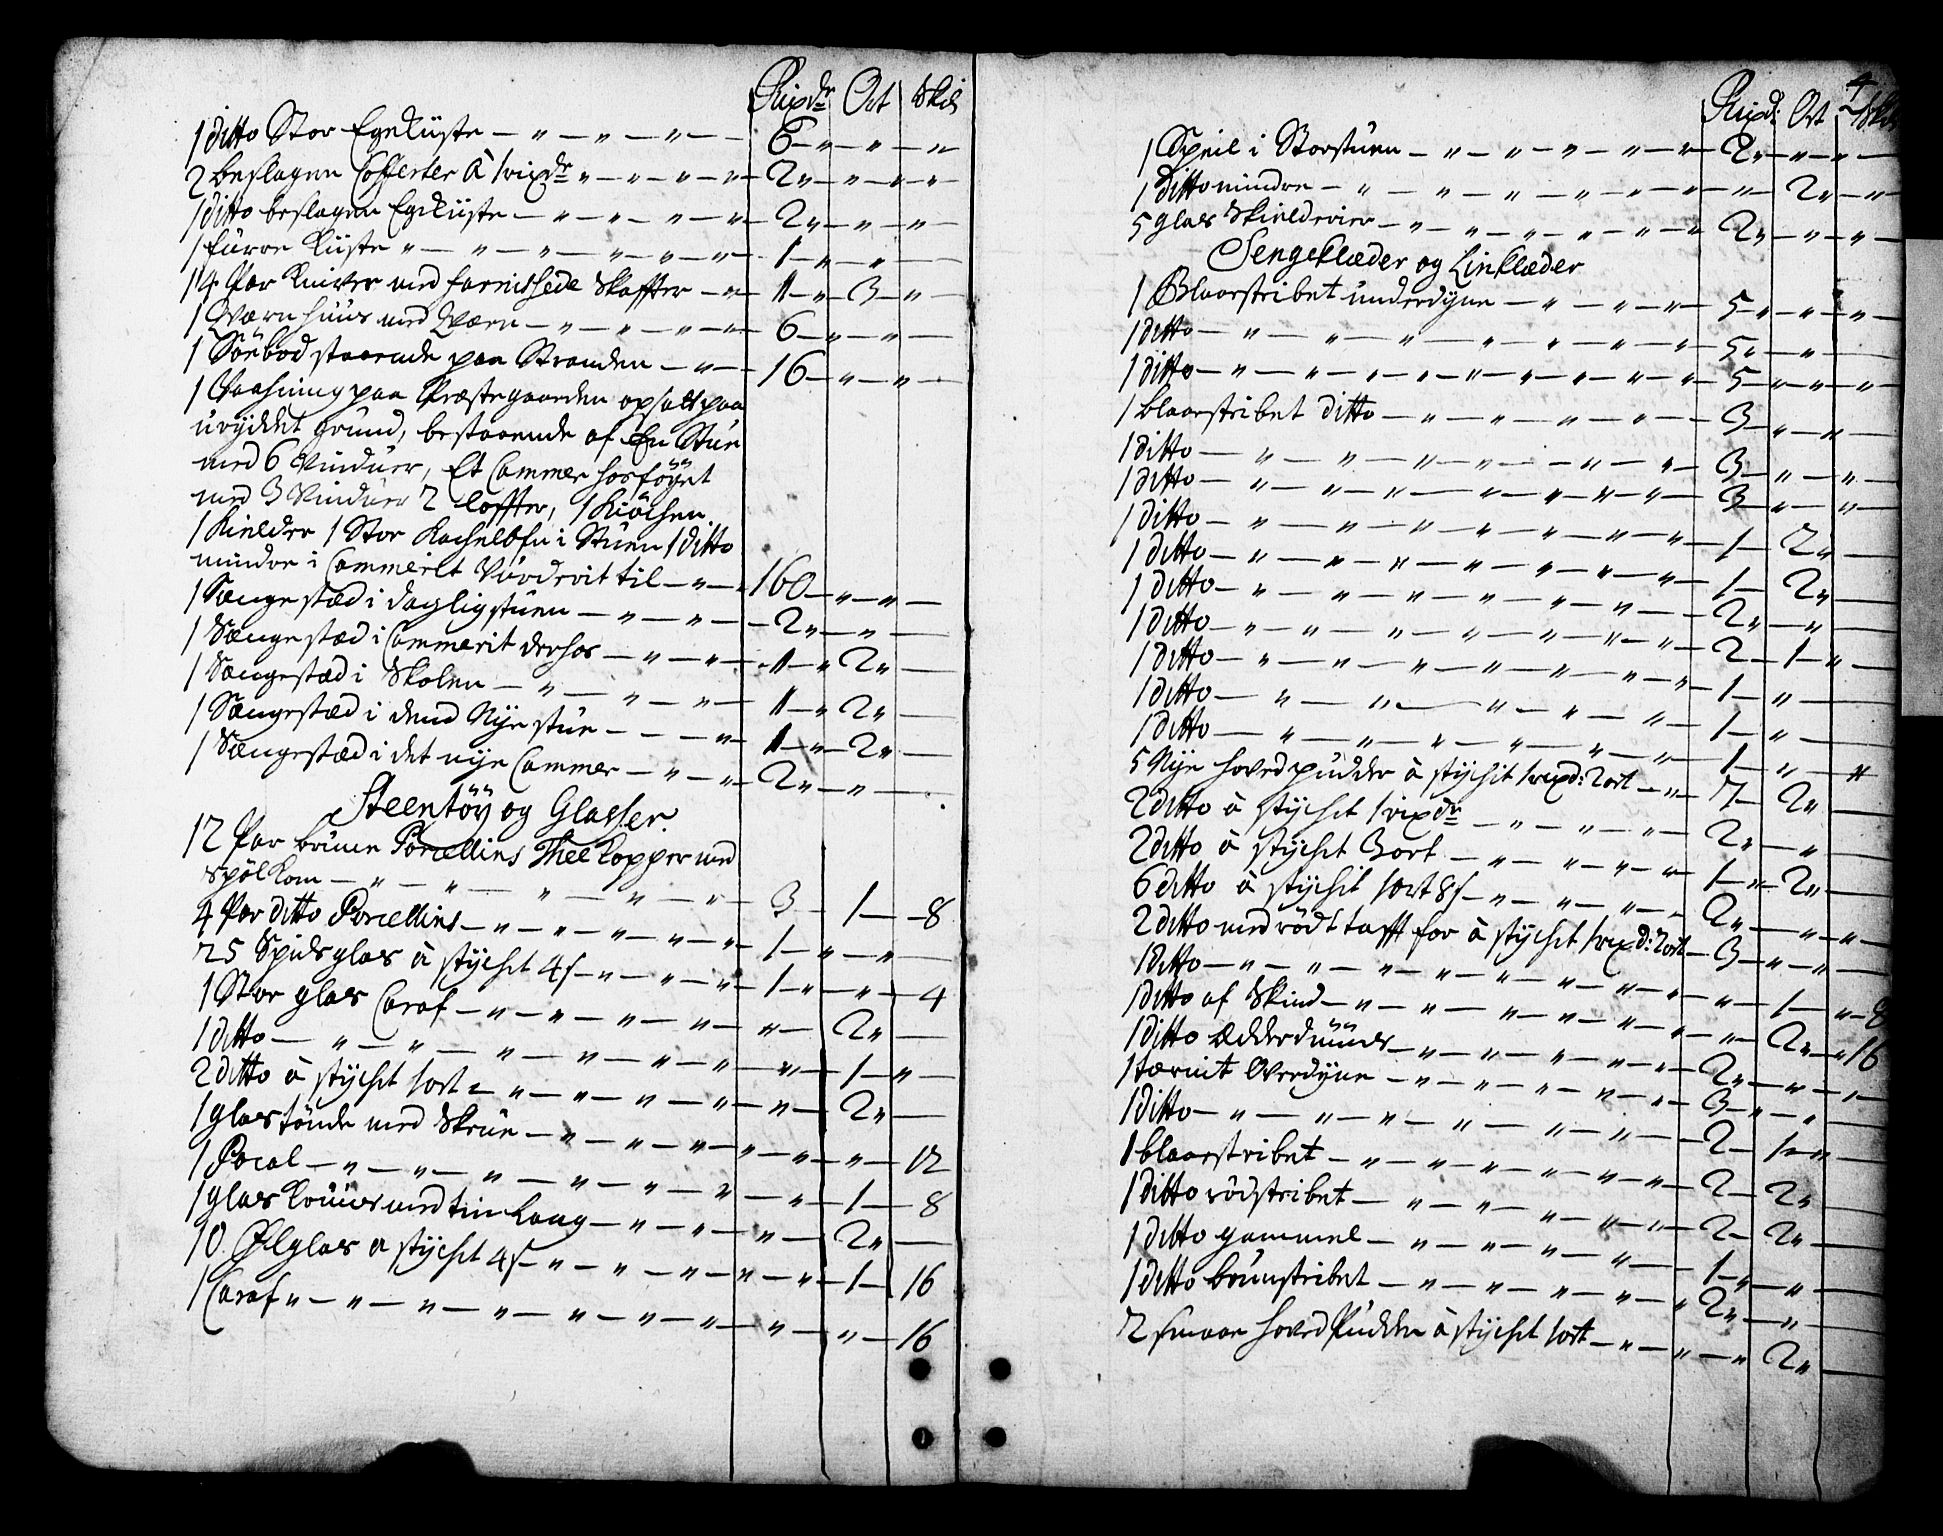 Rixdr Ort Skil
1 ditto Stor Egekiiste — „ — „ — „ — 6 — „ — „ — „
2 beslagen Cofferter à 1 rixdr „ — „ — „ — „ — 2 „ — „ — „ — „
1 ditto beslagen Egekiiste — „ — „ — „ — „ 2 „ — „ — „ —
1 furre Kiiste „ — „ — „ — „ — „ — „ 1 — „ — „ —
14 Par Kniver med fernissede Skaffter — „ — 1 — „ 3 — „ —
1 Qværnhuus med Qværn — „ — „ — „ — „ 6 — „ — „ —
1 Söebod staaende paa Stranden — „ — 16 — „ — „ —
1 Vaahning paa Præstegaarden opsatt paa
uryddet grund, bestaaende af En Stue
med 6 Vinduer, Et Cammer hosföyet
med 3 Vinduer 2 Loffter, 1 Kiöchen
1 Kielder 1 Stor Kachelofn i Stuen 1 ditto
mindre i Cammerit Vurderit til — „ — 160 — „ — „ —
1 Sængestæd i dagligstuen — „ — „ — „ — 2 „ — „ —
1 Sængestæd i Cammerit derhos — „ — „ — 1 — „ 2 „ —
1 Sængestæd i Skolen — „ — „ — „ — 1 — „ 2 „ —
1 Sængestæd i dend Nye stue — — — „ — 1 — „ 2 „ —
1 Sængestæd i det nye Cammer — „ — „ 2 „ — „ —
Steentöy og Glasser.
12 Par bruun Porcellins Thee kopper med
spölkom — „ — „ — „ — „ — „ — 3 — 1 — 8
4 Par ditto Porcellins — „ — „ — „ — „ — 1 — „ — „ —
25 Spidsglas à stychet 4 s — „ — „ — „ 1 — „ — „ — 4
1 Stor glas Caraf — „ — „ — „ — „ — „ — 2 „ —
1 ditto — „ — „ — „ — „ — „ — „ — „ — 1 — „ —
2 ditto à stychet 1 ort — „ — „ — „ — „ — „ — 2 „ —
1 glas tönde med Skrue — „ — „ — „ — „ — „ — „ — 12
1 Pocal — „ — „ — „ — „ — „ — „ — „ — 1 — 8
1 glas Kruus med tin Laag — „ — „ — „ — 2 „ —
10 Ölglas a stychet 4 s — „ — „ — „ — „ — „ — 1 — 16
1 Caraf „ — „ — „ — „ — „ — „ — „ — „ — „ — 16
4
Rixd: Ort Skil
1 Speil i Storstuen — „ — „ — „ — „ — „ — 2 „ — „ — „ —
1 ditto mindre — „ — „ — „ — „ — „ — „ — 2 „ — „
5 glas Skielderier — „ — „ — „ — „ — „ — „ 2 „ — „ — „ —
Sengeklæder og Linklæder
1 Blaarstribet underdyne — „ — „ — „ — 5 — „ — „ — „ —
1 ditto — „ — „ — „ — „ — „ — „ — „ — 5 „ — „ —
1 ditto — „ — „ — „ — „ — „ — „ — „ — 5 — „ — „ — „
1 blaarstribet ditto — „ — „ — „ — „ — 3 — „ — „ —
1 ditto — „ — „ — „ — „ — „ — „ — 3 — „ — „ —
1 ditto — „ — „ — „ — „ — „ — „ — 3 — „ — „ —
1 ditto — „ — „ — „ — „ — „ — „ — 1 — 2 „ —
1 ditto — „ — „ — „ — „ — „ — „ — 1 — 2 „ —
1 ditto — „ — „ — „ — „ — „ — „ — 2 „ — „ —
1 ditto — „ — „ — „ — „ — „ — „ — 2 — 1 — „ —
1 ditto — „ — „ — „ — „ — „ — „ — 1 — „ —
1 ditto — „ — „ — „ — „ — „ — 1 — „ —
1 ditto — „ — „ — „ — „ — „ — „ — 1 — „ — „
5 Nye hoved pudder à stychit 1 rixd: 2 ort — „ — 7 — 2 „ —
2 ditto à stychet 1 rixdr — „ — „ — „ — „ — 2 „ — „ —
2 ditto à stychet 3 ort — „ — „ — „ — „ — 1 — „ — 2 „ —
6 ditto à stychit 1 ort 8 s — „ — „ — „ — „ 2 „ — „ — „ —
2 ditto med rödt tafft for à stychet 1 rixd: 2 ort — 3 — „ — „ —
1 ditto — „ — „ — „ — „ — „ — „ — „ — „ — 1 — „ — 8
1 ditto af Skind — „ — „ — „ — „ — „ — „ — 2 „ — „ 16
1 ditto Ædderduuns — „ — „ — „ — „ — „ — 2 „ — „ — „ —
1 tærnit Overdyne — „ — „ — „ — „ — „ — 3 — „ — „ —
1 ditto — „ — „ — „ — „ — „ — „ — 2 — 1 — „ —
1 blaarstribet — „ — „ — „ — „ — „ — 2 — 2 „ —
1 ditto rödstribet — „ — „ — „ — „ — „ — 2 — 2 „ —
1 ditto gammel — „ — „ — „ — „ — „ — 1 — „ — „ —
1 ditto bruunstribet — „ — „ — „ — „ — „ 2 „ — „ —
2 smaae hoved Pudder à stychet 1 ort — „ — „ — „ 2 „ —